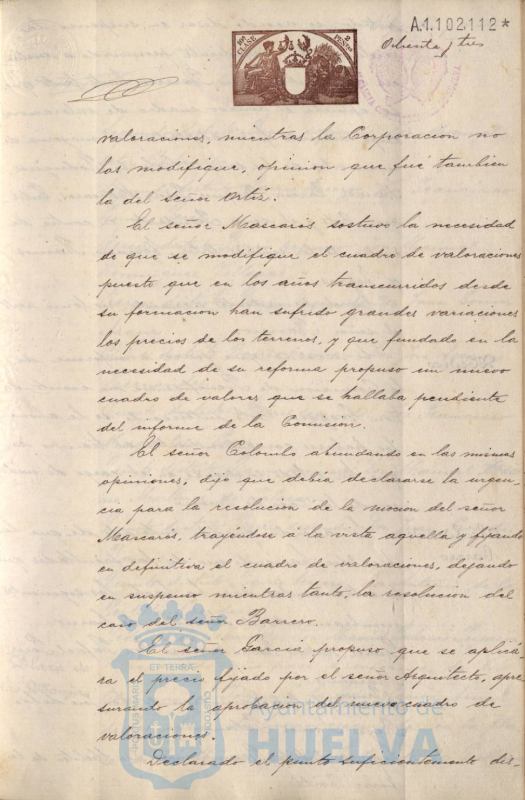 A.1.102.112*
10ª CLASE
2 PESETAS
Ochenta y tres
valoraciones, mientras la Corporacion no
las modifique, opinion que fué tambien
la del Señor Ortiz.
El señor Mascarós sostuvo la necesidad
de que se modifique el cuadro de valoraciones
puesto que en los años transcurridos desde
su formacion han sufrido grandes variaciones
los precios de los terrenos, y que fundado en la
necesidad de su reforma propuso un nuevo
cuadro de valores que se hallaba pendiente
del informe de la Comision.
El señor Colombo abundando en las mismas
opiniones, dijo que debia declararse la urgen-
cia para la resolucion de la mocion del señor
Mascarós, trayéndose á la vista aquella y fijando
en definitiva el cuadro de valoraciones, dejando
en suspenso mientras tanto, la resolucion del
caso del señor Barrero.
El señor Garcia propuso que se aplicá
ra el precio fijado por el señor Arquitecto, apre
surando la aprobacion del nuevo cuadro de
valoraciones.
Declarado el punto suficientemente dis-
Ayuntamiento de
HUELVA
PORTUS MARIS
ET TERRÆ
CUSTODIA